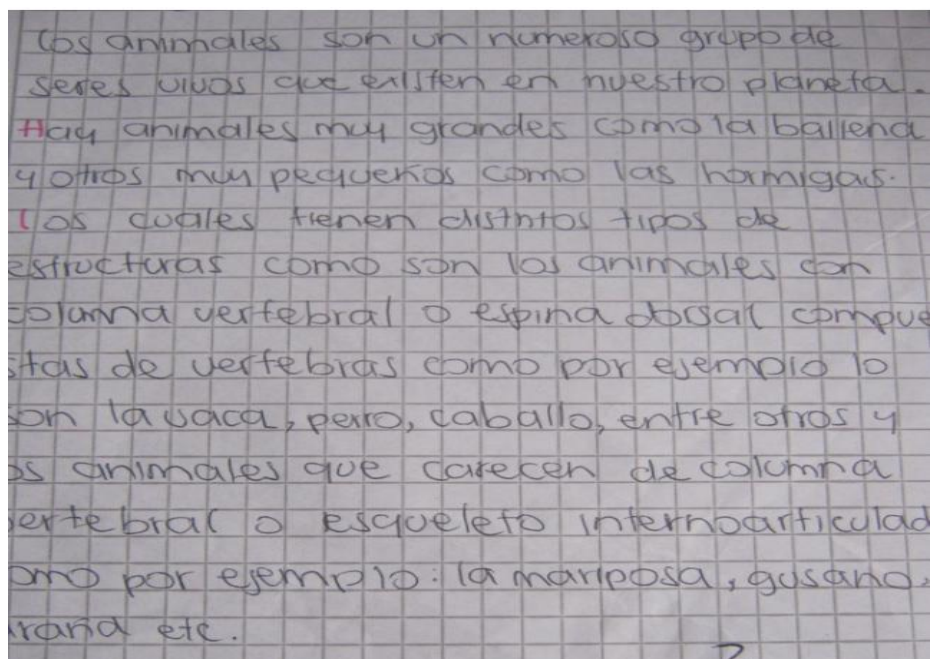 Los animales son un numeroso grupo de
seres vivos que existen en nuestro planeta.
Hay animales muy grandes como la ballena
y otros muy pequeños como las hormigas.
los cuales tienen distntos tipos de
estructuras como son los animales con
columna vertebral o espina dorsal compue
stas de vertebras como por ejemplo lo
son la vaca, perro, caballo, entre otros y
os animales que carecen de columna
ertebral o esqueleto interno articulad
omo por ejemplo: la mariposa, gusano,
araña etc.